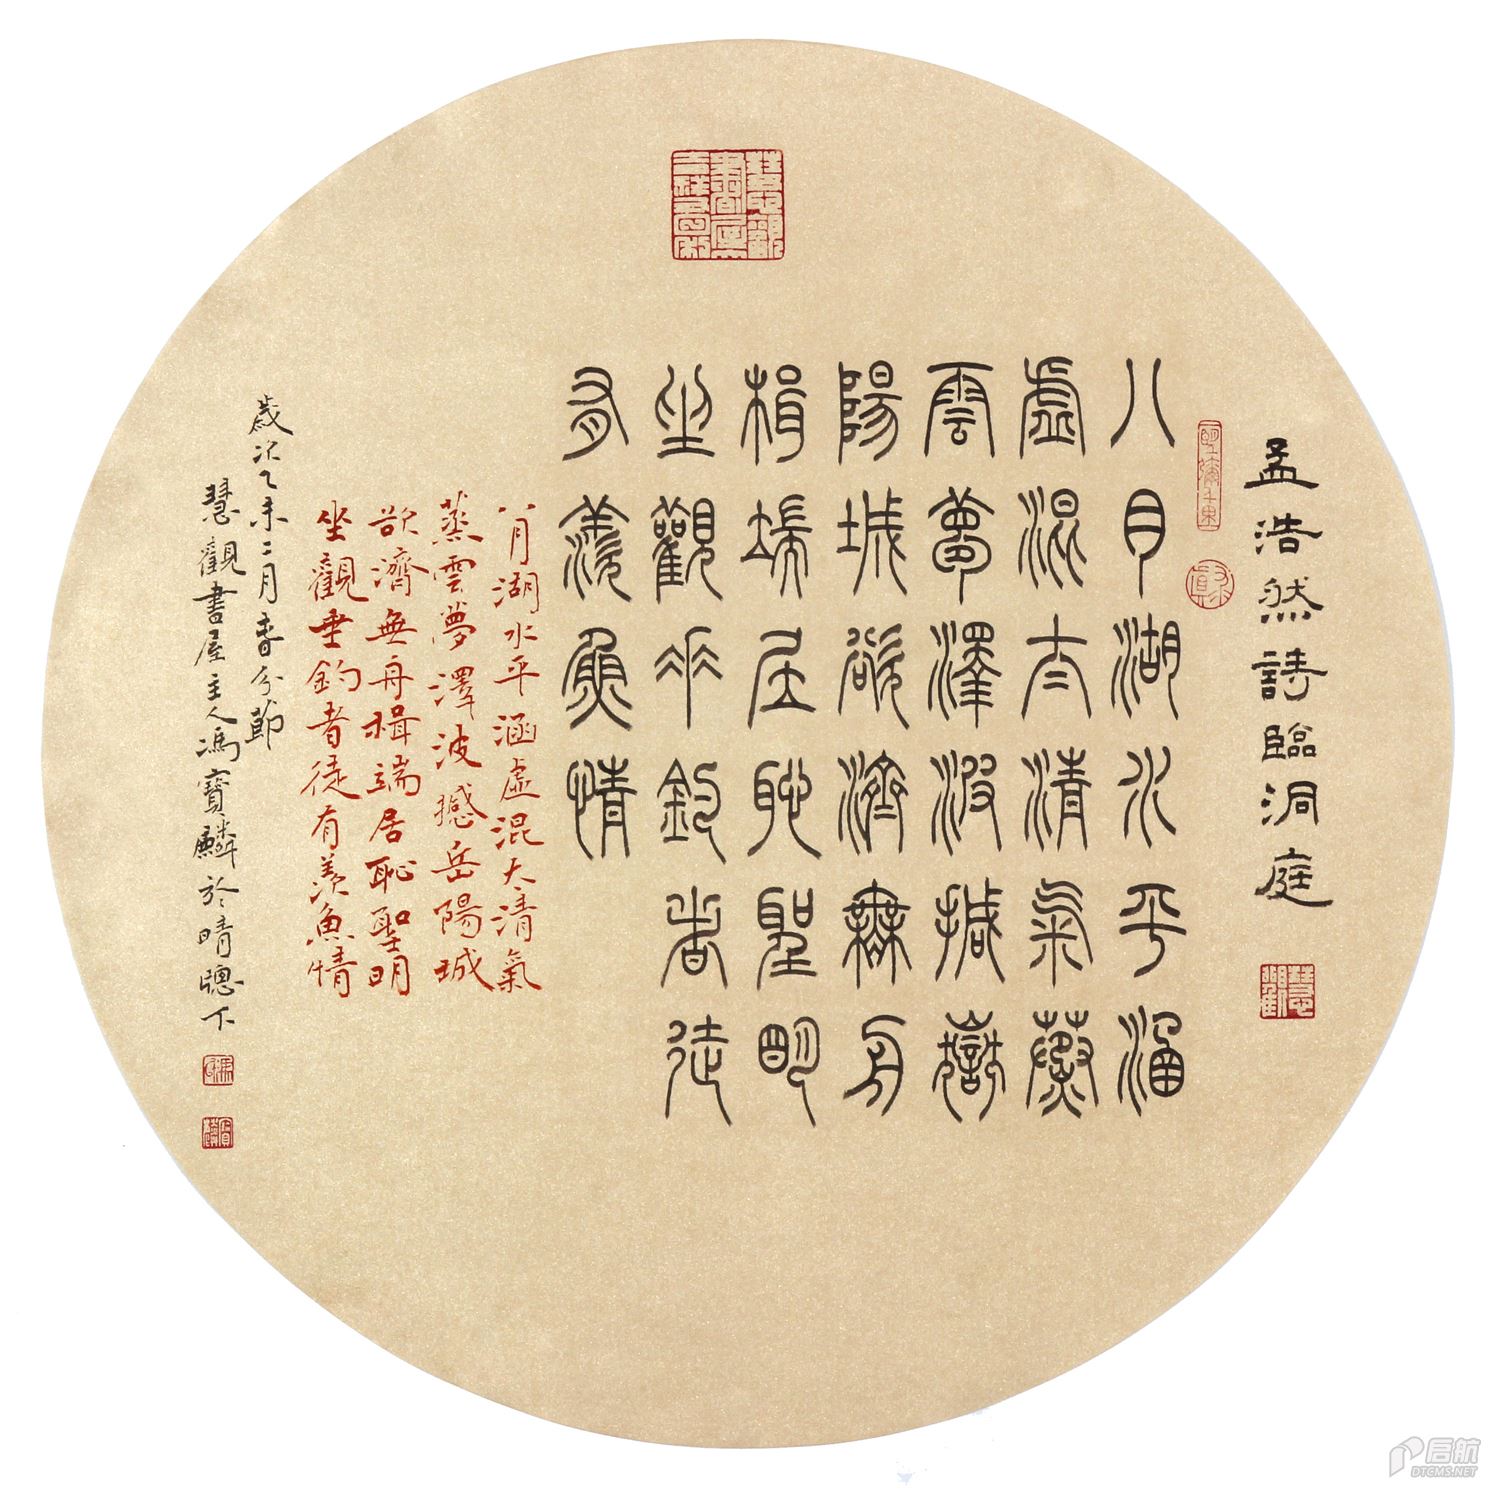 孟浩然詩臨洞庭
慧觀
八月湖水平涵
虛混太清氣蒸
雲夢澤波撼嶽
陽城欲濟無舟
楫端居恥聖明
坐觀垂釣者徒
有羨魚情
八月湖水平涵虛混大清氣
蒸雲夢澤波撼岳陽城
欲濟無舟楫端居恥聖明
坐觀垂釣者徒有羨魚情
歲次乙未二月春分節
慧觀書屋主人馮寶麟於晴牕下
启航
DTCMS.NET